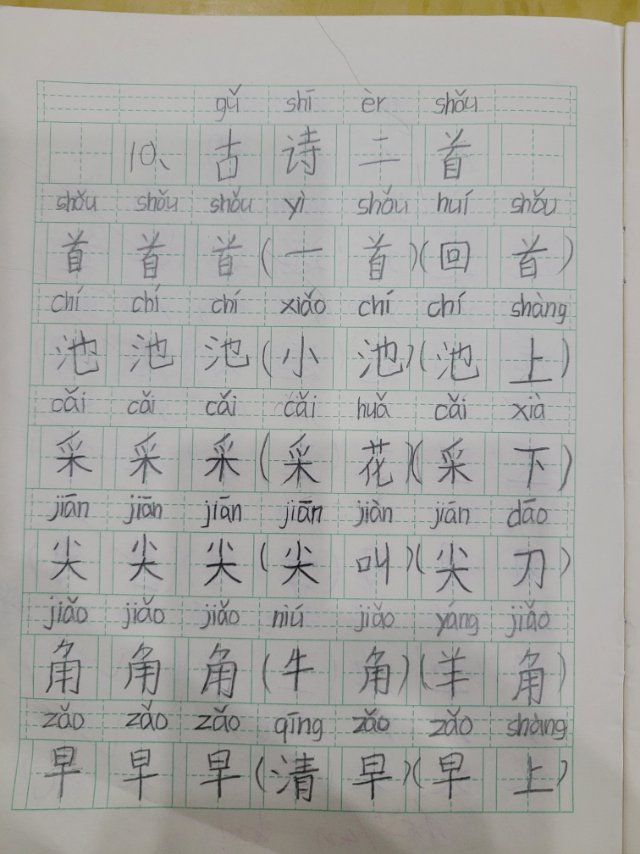 gǔ shī èr shǒu
10、古诗二首
shǒu shǒu shǒu yì shǒu huí shǒu
首首首(一首)(回首)
chí chí chí xiǎo chí chí shàng
池池池(小池)(池上)
cǎi cǎi cǎi cǎi huǎ cǎi xià
采采采(采花)(采下)
jiān jiān jiān jiān jiàn jiān dāo
尖尖尖(尖叫)(尖刀)
jiǎo jiǎo jiǎo niú jiǎo yáng jiǎo
角角角(牛角)(羊角)
zǎo zǎo zǎo qīng zǎo zǎo shàng
早早早(清早)(早上)